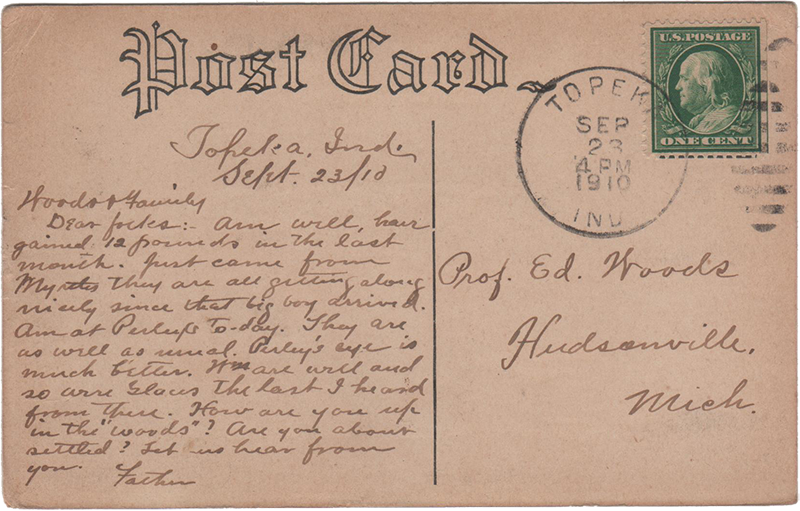 Post Card
U.S. POSTAGE
ONE CENT
TOPEKA
SEP
23
4 PM
1910
IND
Topeka, Ind.
Sept. 23/10
Woods & Family
Dear folks:- Am well, have
gained 12 pounds in the last
month. Just came from
they are all getting along
nicely since that big boy arrived.
Am at Perley's to-day. They are
as well as usual. Perley's eye is
much better. are well and
so were the last I heard
from there. How are you up
in the "woods"? Are you about
settled? Let us hear from
you.
Father
Prof. Ed. Woods
Hudsonville,
Mich.